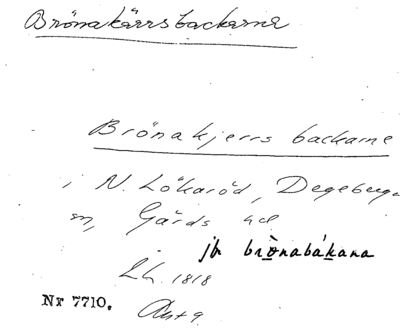 Brönakärrsbackarna
Brönakjerrs backarne
i N. Lökaröd, Degeberga
sn, Gärds hd
jfr brònabákana
Lh. 1818
Nr 7710. Akt 9